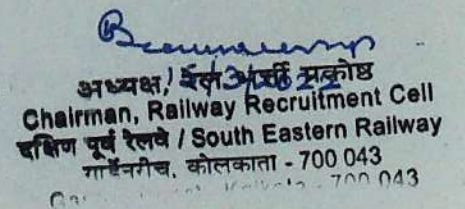 अध्यक्ष, रेल भर्ती प्रकोष्ठ
Chairman, Railway Recruitment Cell
दक्षिण पूर्व रेलवे / South Eastern Railway
गार्डेनरीच, कोलकाता - 700 043
700 043